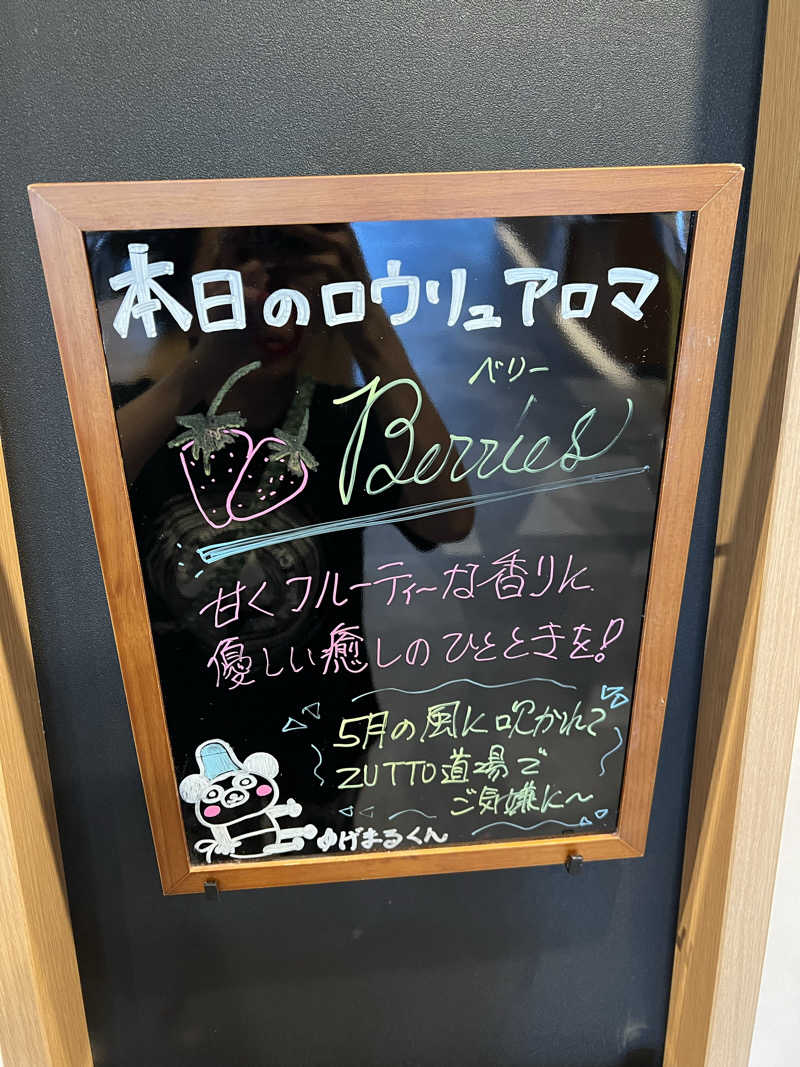 本日のロウリュアロマ
ベリー
Berries
甘くフルーティーな香りに
優しい癒しのひとときを！
5月の風に吹かれて
ZUTTO道場で
ご気嫌に〜
ゆげまるくん